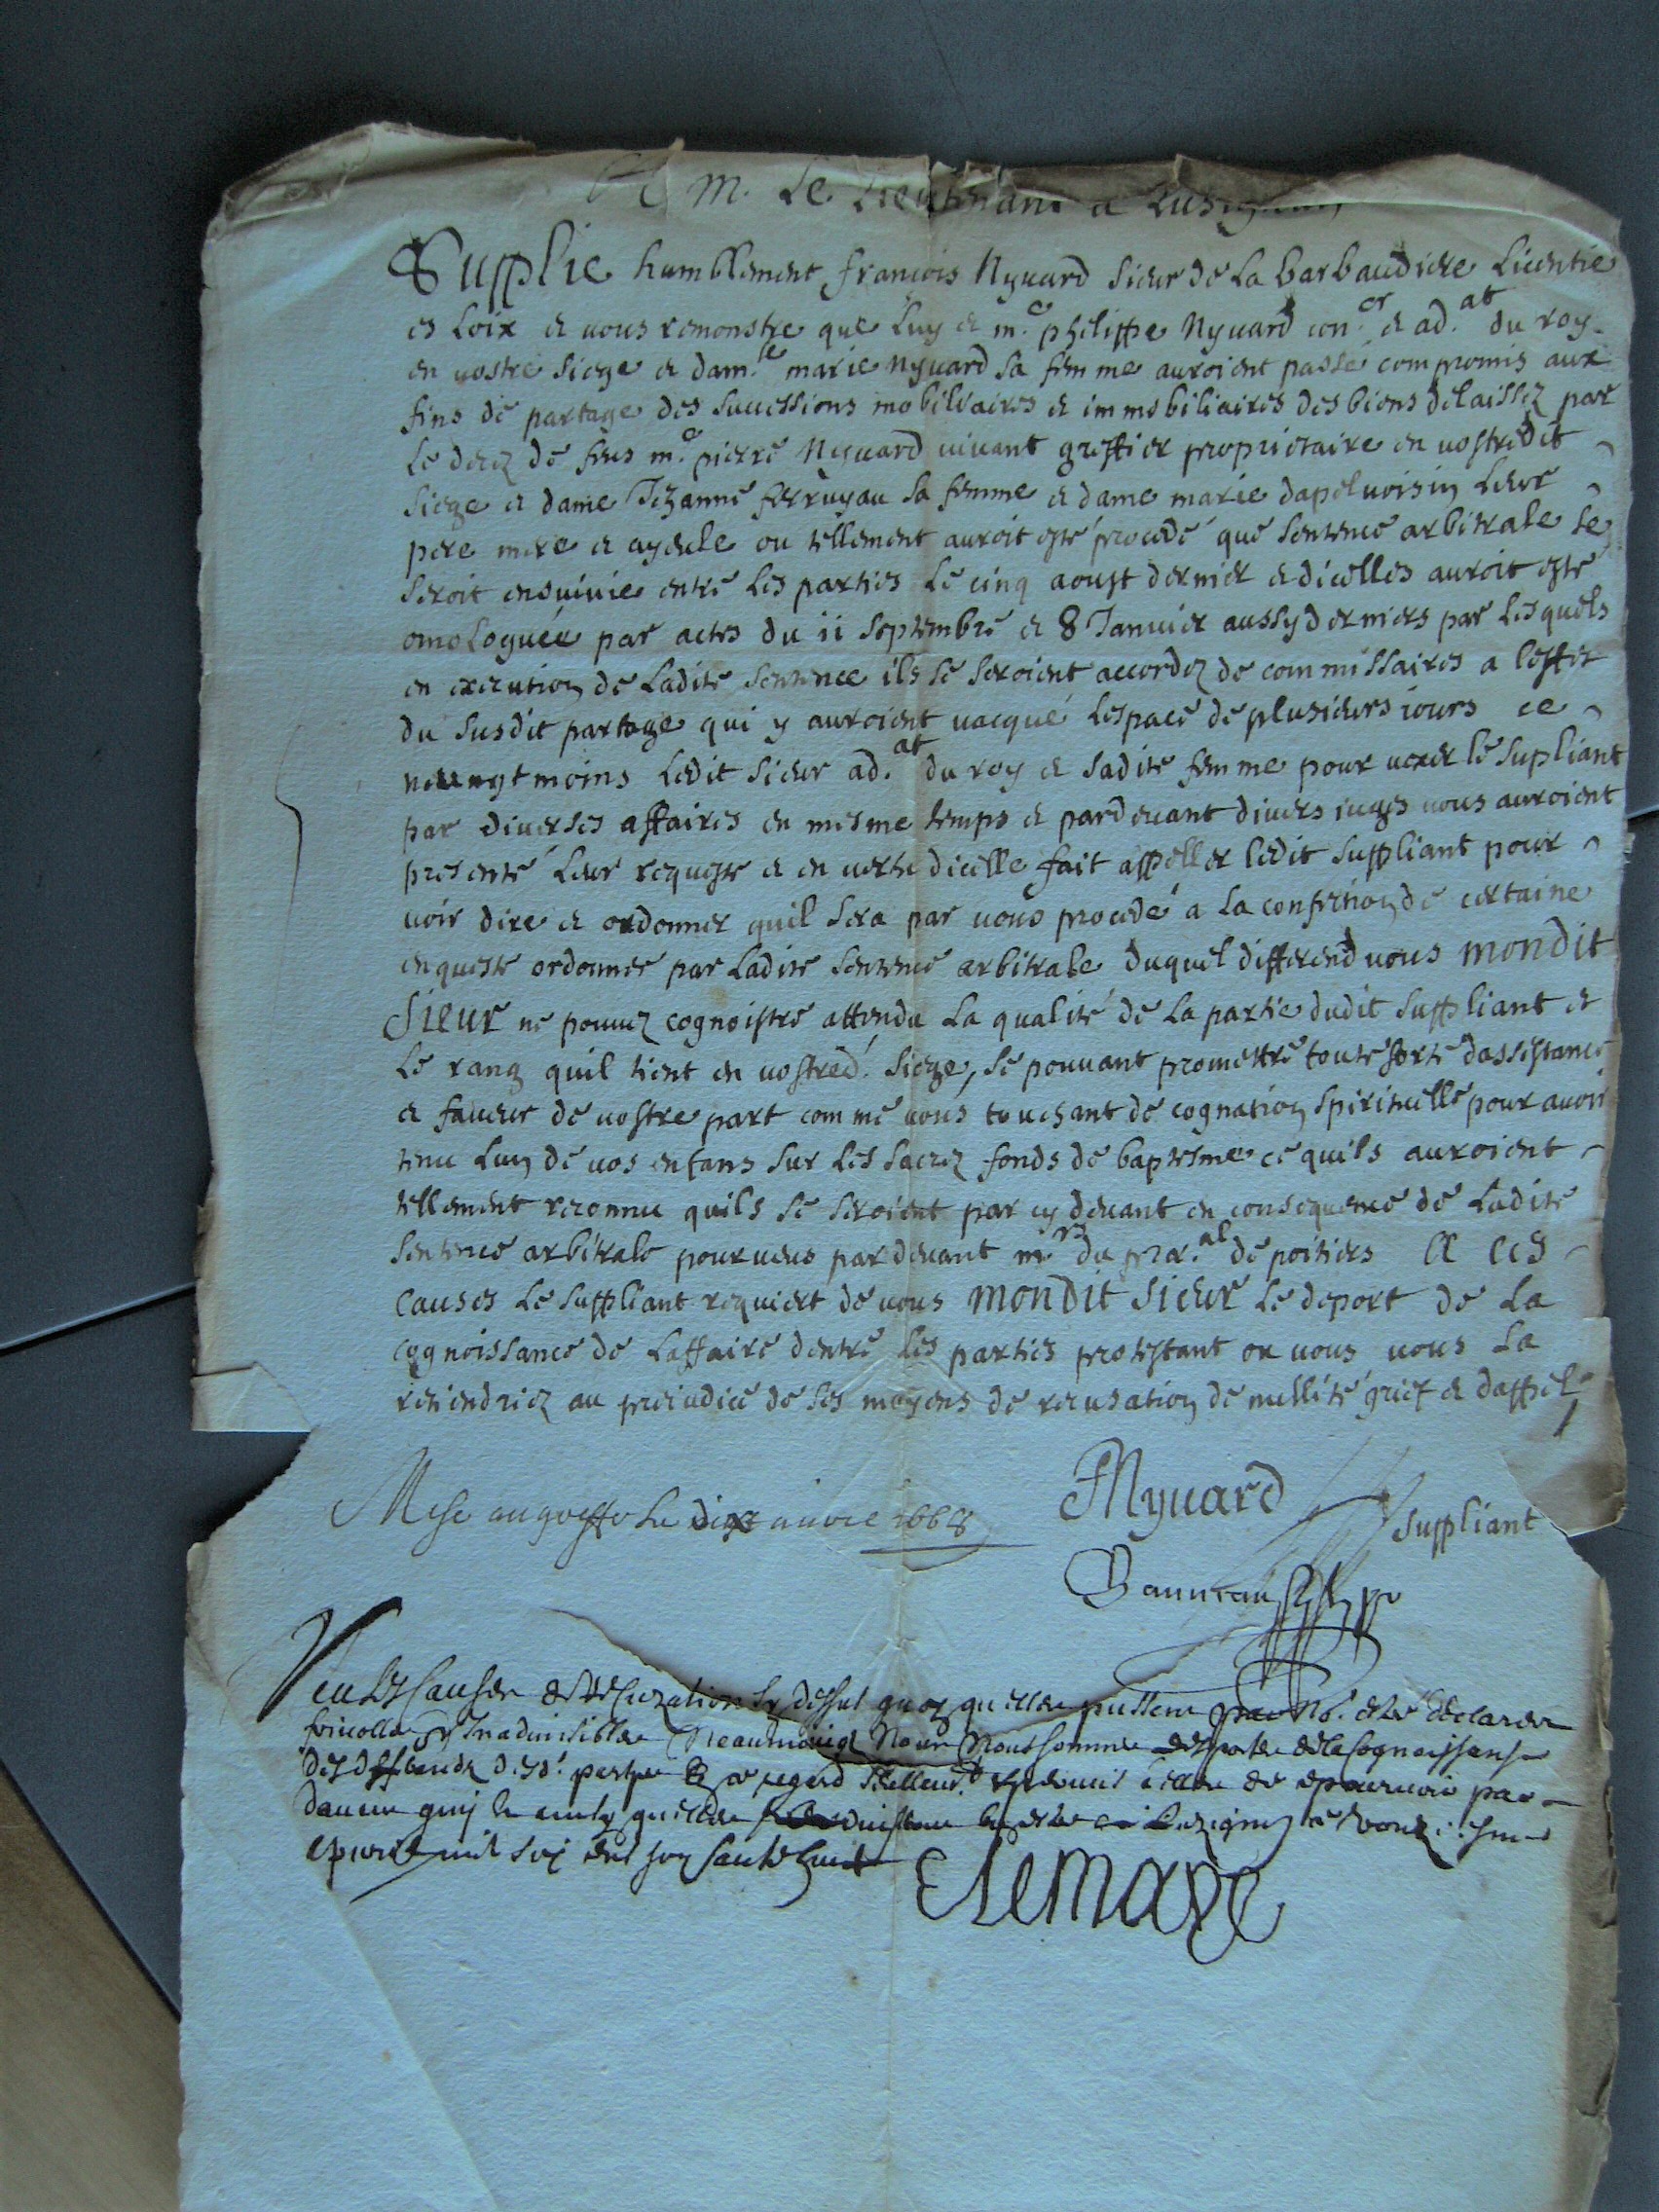 A M. Le Lieutenant a Lusignan
Supplie humblement francois Nyuard sieur de La barbaudiere Licentie
es Loix et vous remonstre que Luy et m.e philippe Nyuard con.er et ad.at du roy
en vostre siege et dam.le marie Nyuard sa femme auroient passé compromis aux
fins de partage des successions mobiliaires et immobiliaires des biens delaissez par
Le decez de feus m.e pierre Nyuard vivant greffier proprietaire en vostredit
siege et dame Jehanne ferruyau sa femme et dame marie dapeluoisin Leur
pere mere et ayeule ou tellement auroit esté procedé que sentence arbitrale se
seroit ensuivie entre Les parties Le cinq aoust dernier et dicelles auroit esté
omologuée par actes du 11 septembre et 8 Januier aussy derniers par Lesquels
en execution de Ladite sentence ils se seroient accordez de commissaires a leffet
du susdit partage qui y auroient vacqué Lespace de plusieurs iours ce
neantmoins Ledit sieur ad.at du roy et sadite femme pour vexer le supliant
par diverses affaires en mesme temps et pardevant divers iuges vous auroient
presenté Leur requeste et en vertu dicelle fait appeller ledit suppliant pour
voir dire et ordonner quil sera par vous procedé a La confection de certaine
enqueste ordonnée par Ladite sentence arbitrale duquel differend vous mondit
sieur ne pouvez cognoistre attendu La qualité de La partie dudit suppliant et
Le rang quil tient en vostred. siege, se pouvant promettre toute sorte dassistance
et faveur de vostre part comme vous touchant de cognation spirituelle pour avoir
tenu Lun de vos enfans sur Les sacrez fonds de baptesme ce quils auroient
tellement reconnu quils se seroient par cy devant en consequence de Ladite
sentence arbitrale pourveus pardevant m.rs du pr.al de poitiers A ces
causes Le suppliant requiert de vous mondit sieur Le deport de La
cognoissance de Laffaire dentre les parties protestant ou vous vous La
retiendriez au preiudice de ses moyens de recusation de nullité grief et dappel
Myuard suppliant
Mise au greffe Le dix auvril 1668
Veu Les causes de recuzation cy dessus quoy quelles pussent estre declarer
frivolles et Inadmisibles Neaumoings Nous Nous sommes desportes de la Cognoissance
des differends desd. parties
davant quy
apvril mil six cent soixante huit
Elemaye